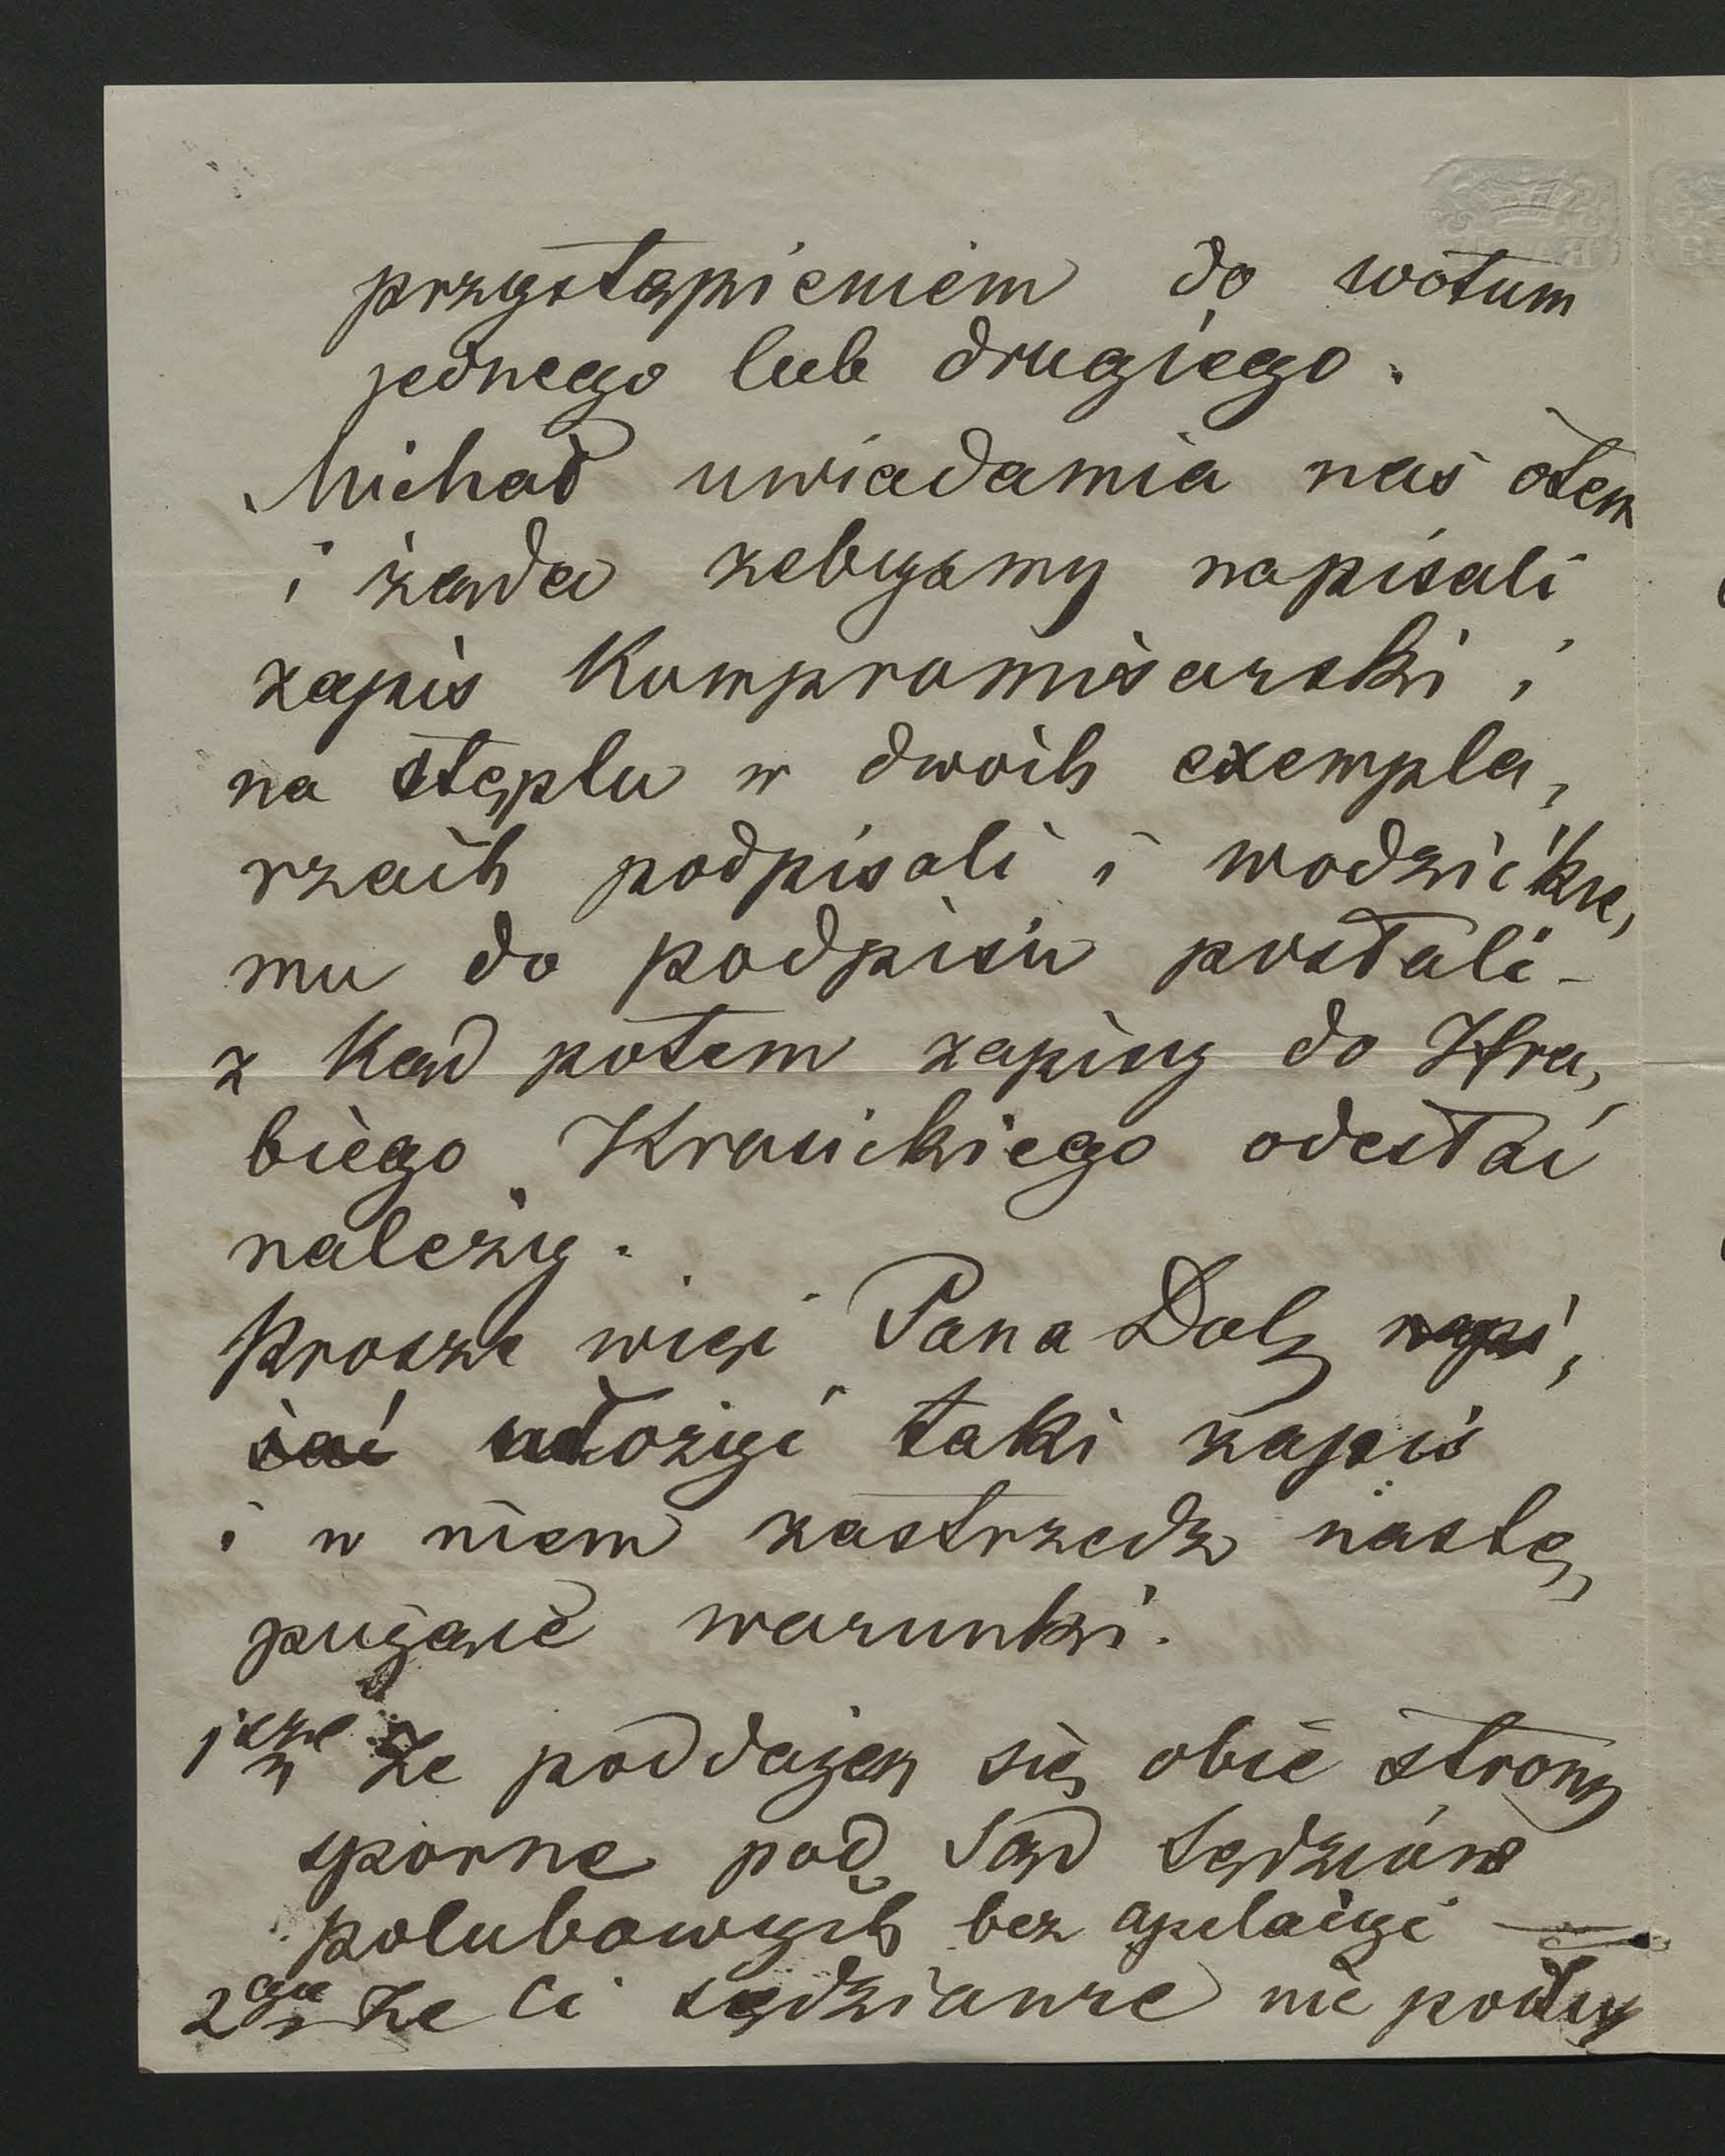 przystąpieniem do wotum
jednego lub drugiego.
Michał uwiadamia nas otem
i żąda zebysmy napisali
zapis Kompromisarski i
na stęplu w dwóch exempla,
rzach podpisali i wodzickie,
mu do podpisu posłali -
z Kąd potem zapisy do Hra,
biego Krasickiego odesłać
należy.
Prosze więc Pana Dolę napi,
sać ułożyć taki zapis
i w niem zastrzedz nastę,
pujące warunki.
1sze Ze poddajen się obie strony
sporne pod Sąd Sędziów
polubowych bez apelacyi
2gie Ze Ci sędziowie nie podług